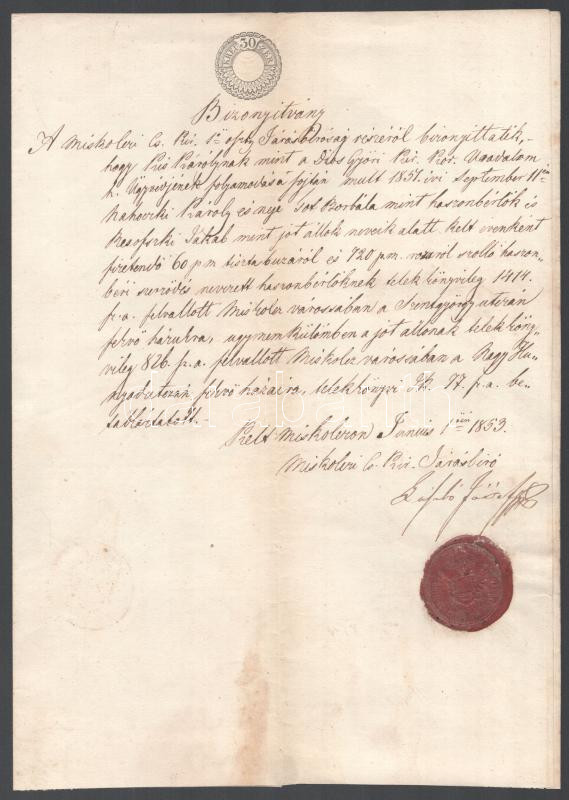 30
KREUZER
Bizonyítvány
A Miskolczi Cs. Kir. 1ső oszt. Járásbíróság részéről bizonyittatik,
hogy Kis Károlynak mint a Diós Győri Kir. Kor. Uradalom
k. Ügyvédjének folyamodása fojtán mult 1851. évi September 11én
Károly és neje Borbála mint haszonbérlők és
Jakab mint jót állok neveik alatt kelt évenként
fizetendő 60 p.m. tisztabuzáról és 720 p.m. szolló haszon„
béri szerződés nevezett haszonbérlőknek telekkönyvileg 1414.
sz. a. felvallott Miskolcz várossában a Szentgyörgy utczán
fekvő házukra, ugy nemkülömben a jót állonak telekköny„
vileg 826. sz. a. felvallott Miskolcz várossában a Nagy Hu„
nyad utczán fekvő házaira, telekkönyvi 77. sz. a. be„
tábláztatott.
Kelt Miskolczon Junius 1én 1853.
Miskolczi Cs. Kir. Járásbíró